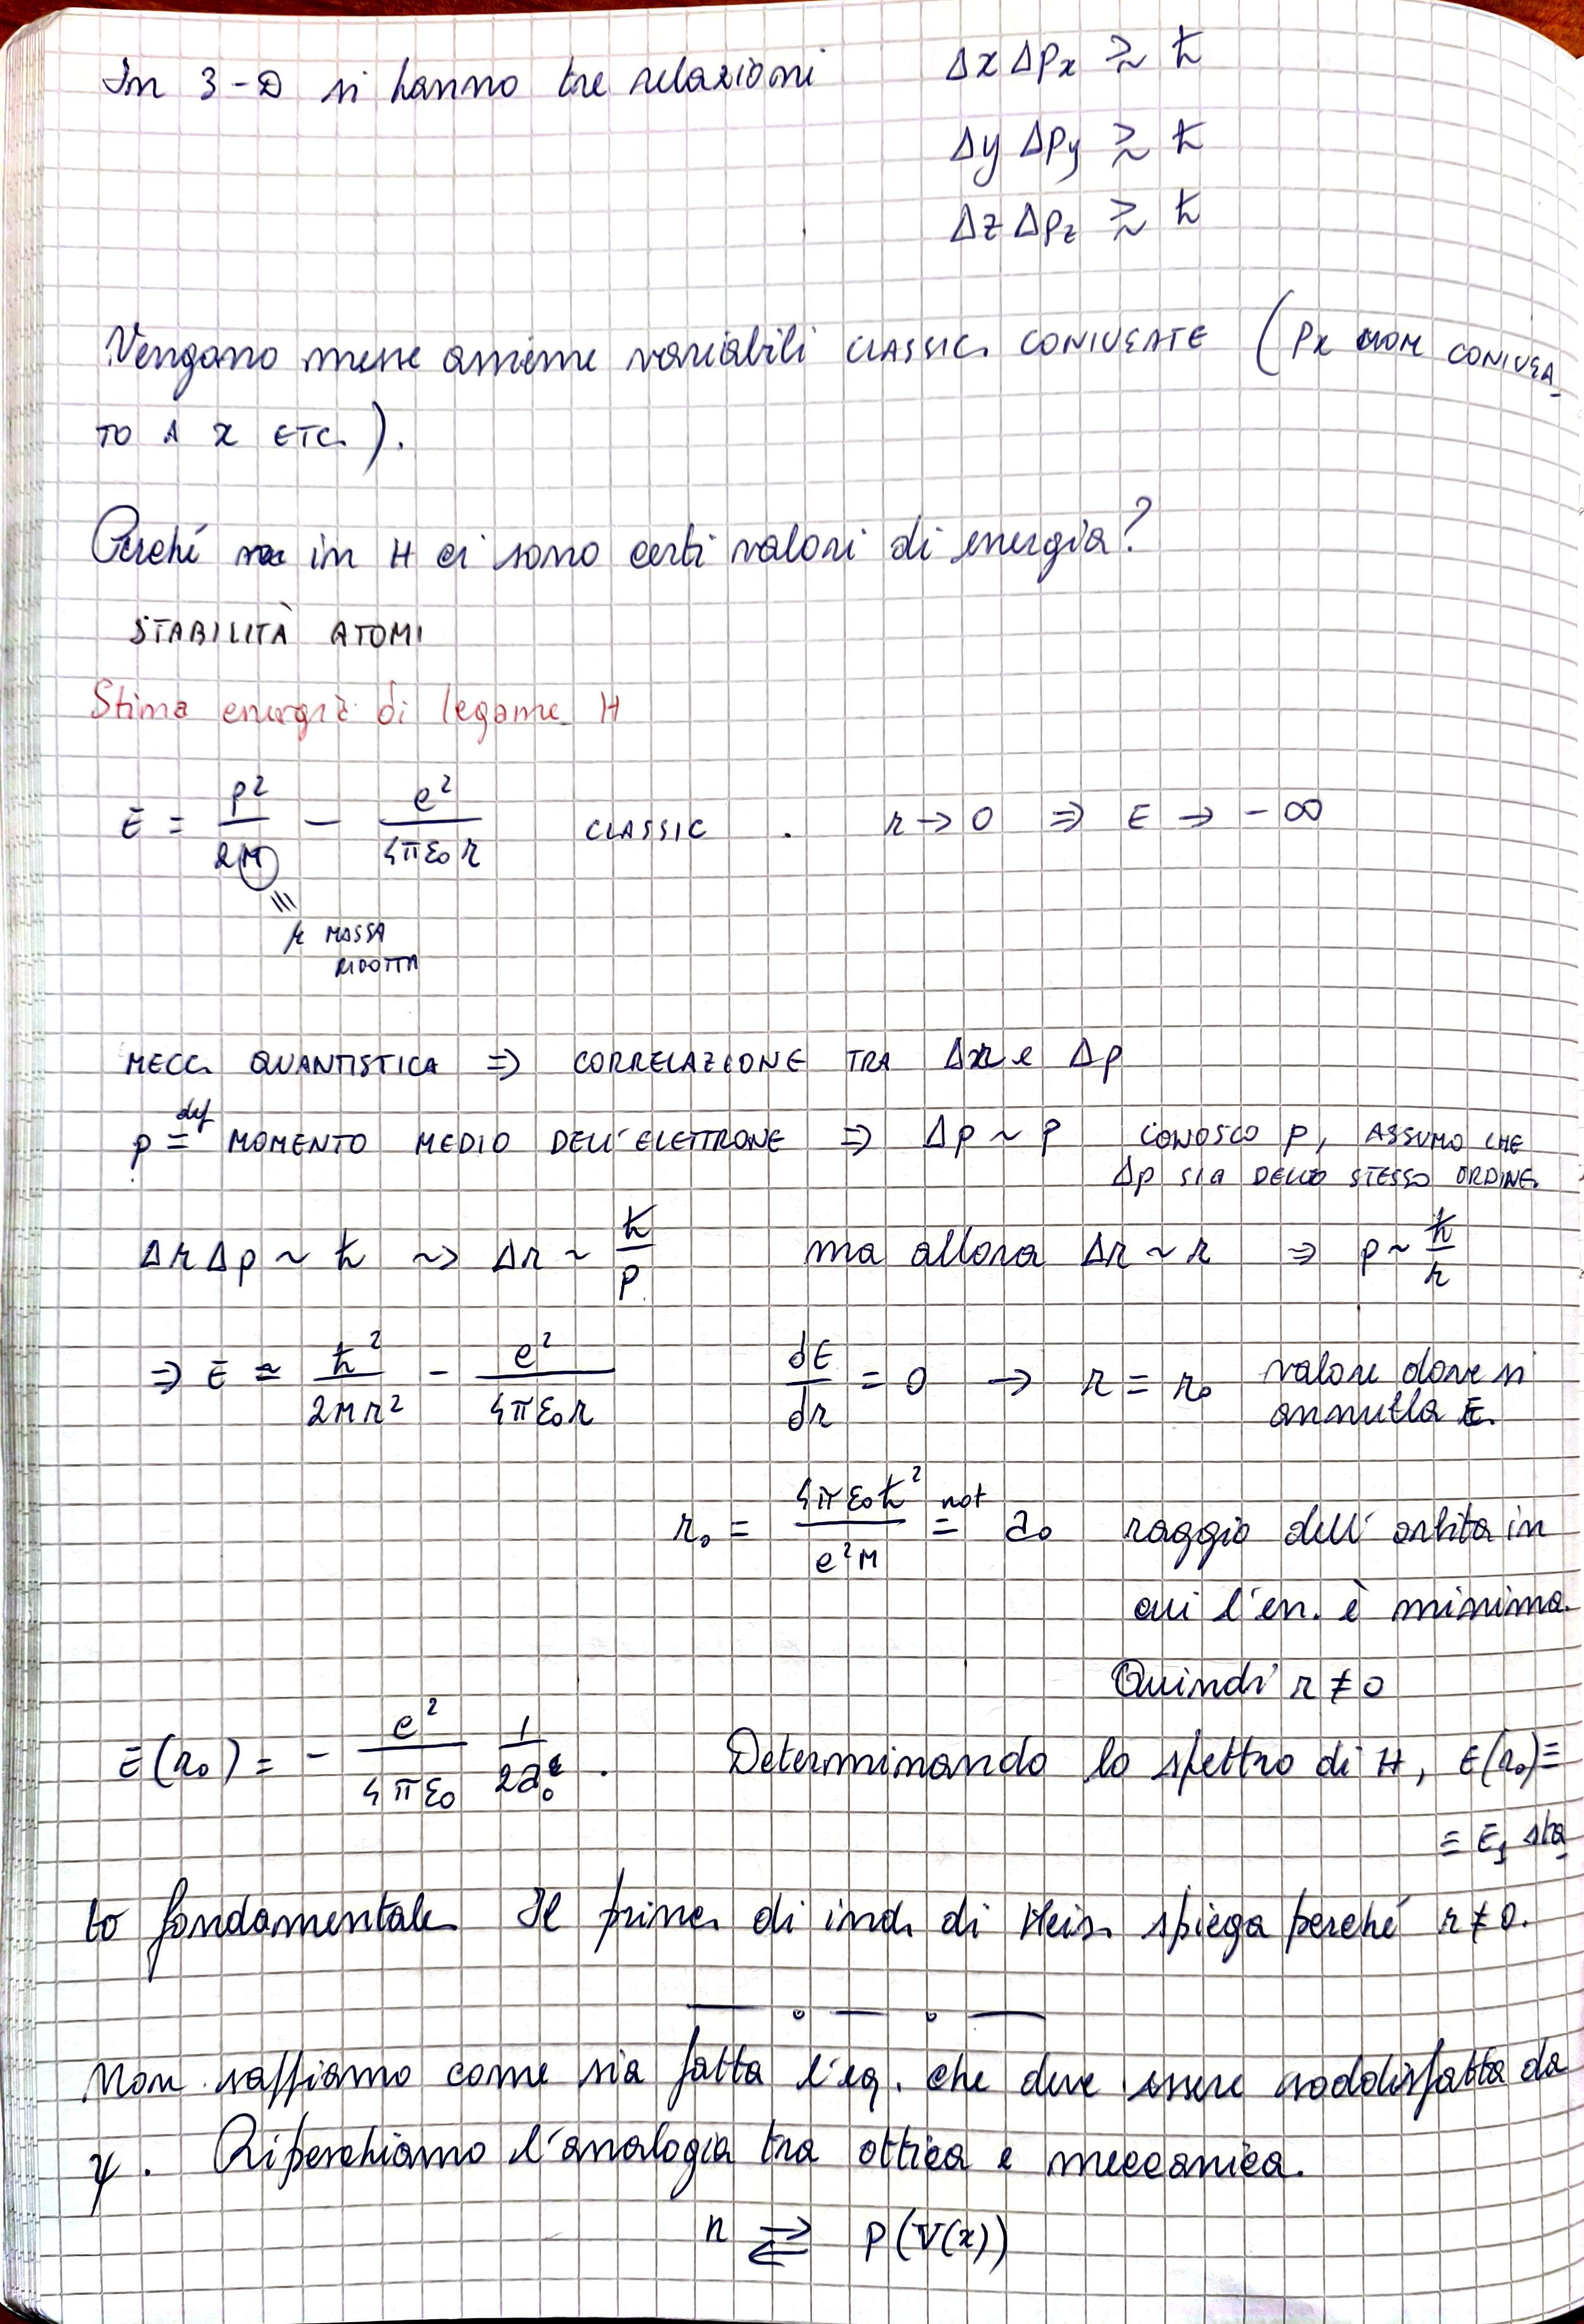 In 3-D si hanno tre relazioni Δx Δpx ≳ ħ
Δy Δpy ≳ ħ
Δz Δpz ≳ ħ
Vengono messe assieme variabili CLASSIC. CONIUGATE (Px MOM CONIUGA_
TO A x ETC.).
Perché in H ci sono certi valori di energia?
STABILITÀ ATOMI
Stima energia di legame H
E = p²/2M − e²/4πε₀r CLASSIC . r → 0 ⇒ E → −∞
≡
μ MASSA
RIDOTTA
MECC. QUANTISTICA ⇒ CORRELAZIONE TRA Δr e Δp
p =def MOMENTO MEDIO DELL'ELETTRONE ⇒ Δp ~ p CONOSCO p, ASSUMO CHE
Δp SIA DELLO STESSO ORDINE.
Δr Δp ~ ħ ⇝ Δr ~ ħ/p ma allora Δr ~ r ⇒ p ~ ħ/r
⇒ E ≃ ħ²/2Mr² − e²/4πε₀r dE/dr = 0 → r = r₀ valore dove si
annulla E.
r₀ = 4πε₀ħ²/e²M =not a₀ raggio dell'orbita in
cui l'en. è minima.
Quindi r ≠ 0
E(r₀) = − e²/4πε₀ 1/2a₀ . Determinando lo spettro di H, E(r₀) =
= E₁ sta_
to fondamentale. Il princ. di ind. di Heis. spiega perché r ≠ 0.
Non sappiamo come sia fatta l'eq. che deve essere soddisfatta da
ψ. Riperchiamo l'analogia tra ottica e meccanica.
n ⇄ p(V(x))